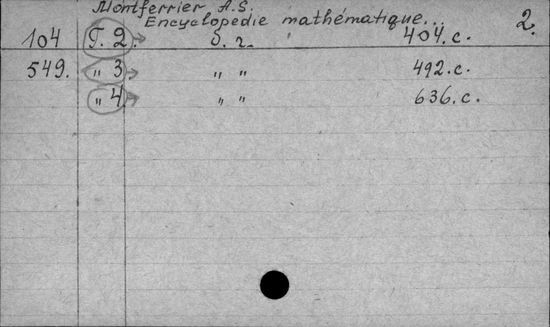 Montferrier, A.S.
Encyclopedie mathématique... 2.
104 Т. 2. б. г. 404.с.
549. " 3 " " 492.с.
" 4 " " 636.с.